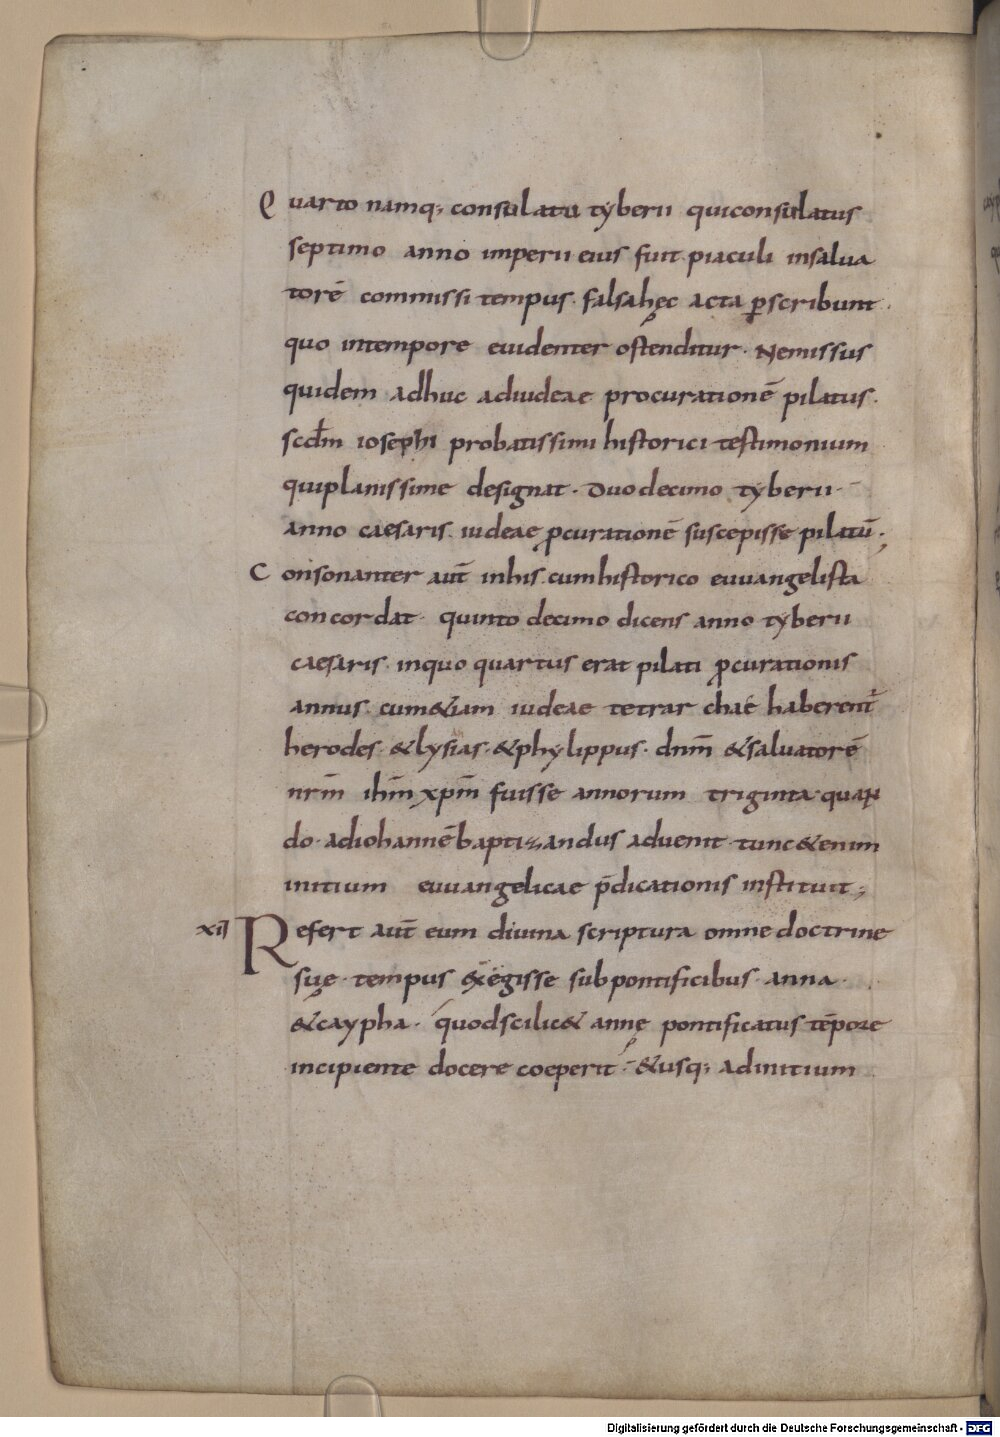 Quarto namq; consulatu tyberii quiconsulatus
septimo anno imperii eius fuit piaculi insalua
torē commissi tempus. falsahęc acta ꝑscribunt.
quo intempore euidenter ostenditur. Nemissus
quidem adhuc adiudeae procurationē pilatus.
scd̄m iosephi probatissimi historici testimonium
quiplanissime designat. Duodecimo tyberii.
anno caesaris. iudeae ꝓcurationē suscepisse pilatū.
Consonanter aut̄ inhis. cumhistorico euuangelista
concordat. quinto decimo dicens anno tyberii
caesaris. inquo quartus erat pilati ꝓcurationis
annus. cum&iam iudeae tetrarchae haberent᷑
herodes. &lysias. &phylippus. dnm̄ &saluatorē
nrm̄ ihm̄ xpm̄ fuisse annorum triginta. quan
do. adiohannē baptizandus aduenit. tunc&enim
initium euuangelicae p̄dicationis instituit;
xii Refert aut̄ eum diuina scriptura omne doctrine
suę. tempus exegisse subpontificibus. anna.
&caypha. quodscilic& annę pontificatus tēpore
incipiente docere coeperit. &usq; adinitium
Digitalisierung gefördert durch die Deutsche Forschungsgemeinschaft - DFG